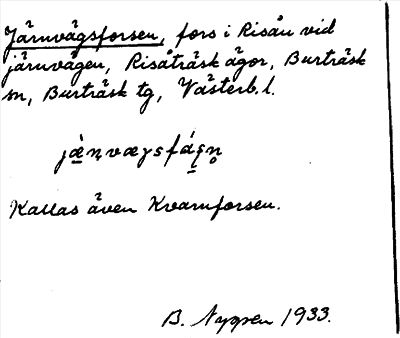 Järnvägsforsen, fors i Risån vid
järnvägen, Risåträsk ägor, Burträsk
sn, Burträsk tg, Västerb. l.
Kallas även Kvarnforsen.
B. Nygren 1933.